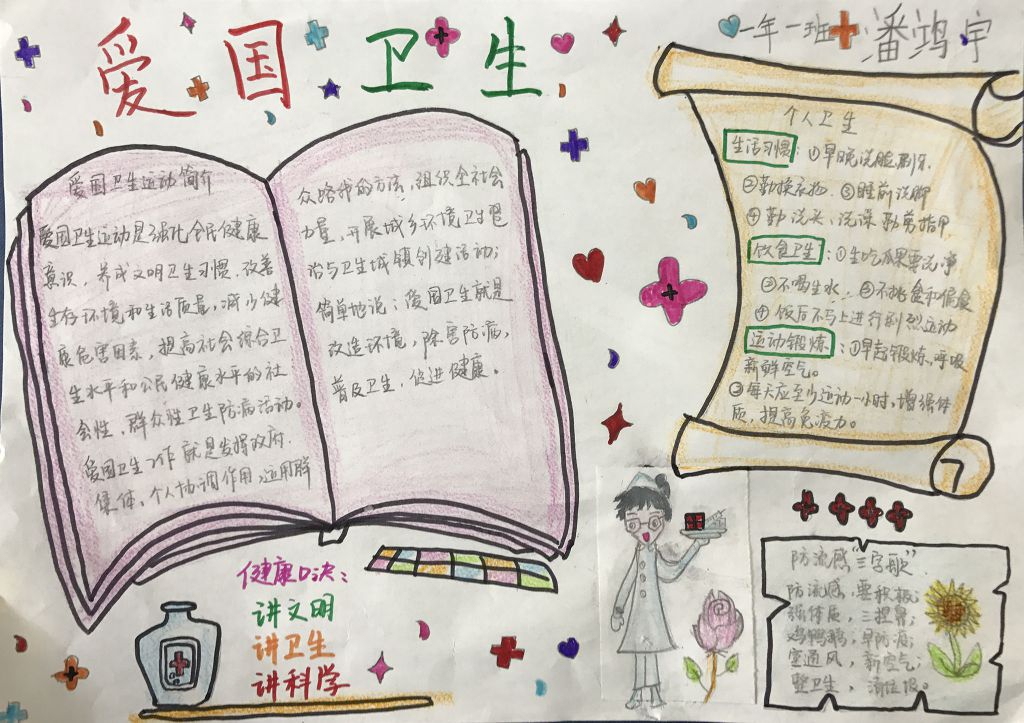 爱国卫生
一年一班 潘鸿宇
爱国卫生运动简介
爱国卫生运动是强化全民健康
意识，养成文明卫生习惯，改善
生存环境和生活质量，减少健
康危害因素，提高社会综合卫
生水平和公民健康水平的社
会性、群众性卫生防病活动。
爱国卫生工作就是发挥政府、
集体、个人协调作用，运用群
众路线的方法，组织全社会
力量，开展城乡环境卫生整
治与卫生城镇创建活动；
简单地说，爱国卫生就是
改造环境，除害防病，
普及卫生，促进健康。
个人卫生
生活习惯：①早晚洗脸刷牙
②勤换衣物 ③睡前洗脚
④勤洗头、洗澡 勤剪指甲
饮食卫生：①生吃瓜果要洗净
②不喝生水 ③不挑食和偏食
④饭后不马上进行剧烈运动
运动锻炼：①早起锻炼，呼吸
新鲜空气。
②每天应至少运动一小时，增强体
质，提高免疫力。
健康口诀：
讲文明
讲卫生
讲科学
防流感“三字歌”
防流感，要积极；
强体质，三捏鼻；
鸡鸭鹅，早防疫；
室通风，新空气；
整卫生，清垃圾。